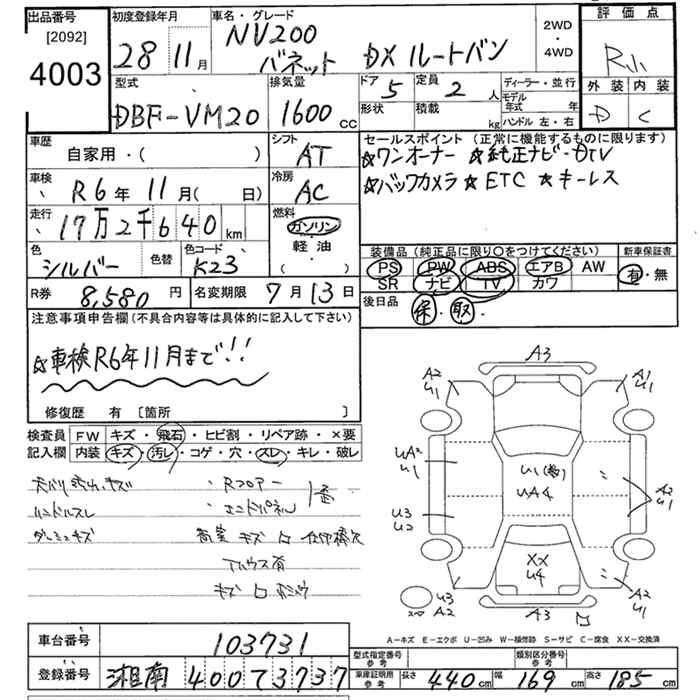 出品番号
[2092]
4003
初度登録年月
28 11月
車名・グレード
NV200
バネット DXルートバン
2WD
・
4WD
評価点
R小
外装 内装
D C
型式
DBF-VM20
排気量
1600cc
ドア 5
形状
定員 2人
積載 kg
ディーラー・並行
モデル年式 年
ハンドル 左・右
車歴
自家用・( )
シフト
AT
セールスポイント (正常に機能するものに限ります)
☆ワンオーナー ☆純正ナビ・DTV
☆バックカメラ ☆ETC ☆キーレス
車検
R6年11月( 日)
冷房
AC
走行
17万2千640km
燃料
ガソリン
軽油
( ・ )
色
シルバー
色替
色コード
K23
装備品 (純正品に限り○をつけてください)
PS PW ABS エアB AW
SR ナビ TV カワ
新車保証書
有・無
R券 8,580円
名変期限 7月13日
後日品 保・取
注意事項申告欄(不具合内容等は具体的に記入して下さい)
☆車検R6年11月まで!!
修復歴 有 [箇所 ]
検査員記入欄
FW キズ・飛石・ヒビ割・リペア跡・×要
内装 キズ・汚レ・コゲ・穴・スレ・キレ・破レ
・Rフロアー
ハンドルスレ ・エンドパネル
A3
A2
U1
A1
U1
UA2
U1
U1
UA4
U3
U2
A2
U1
XX
U4
U3
A2
A3
A2
U1
A-キズ E-エクボ U-凹み W-補修跡 S-サビ C-腐食 XX-交換済
車台番号 103731
登録番号 湘南 400 て 3737
型式指定番号 参考
類別区分番号 参考
車庫証明用 参考 長さ 440cm 幅 169cm 高さ 185cm